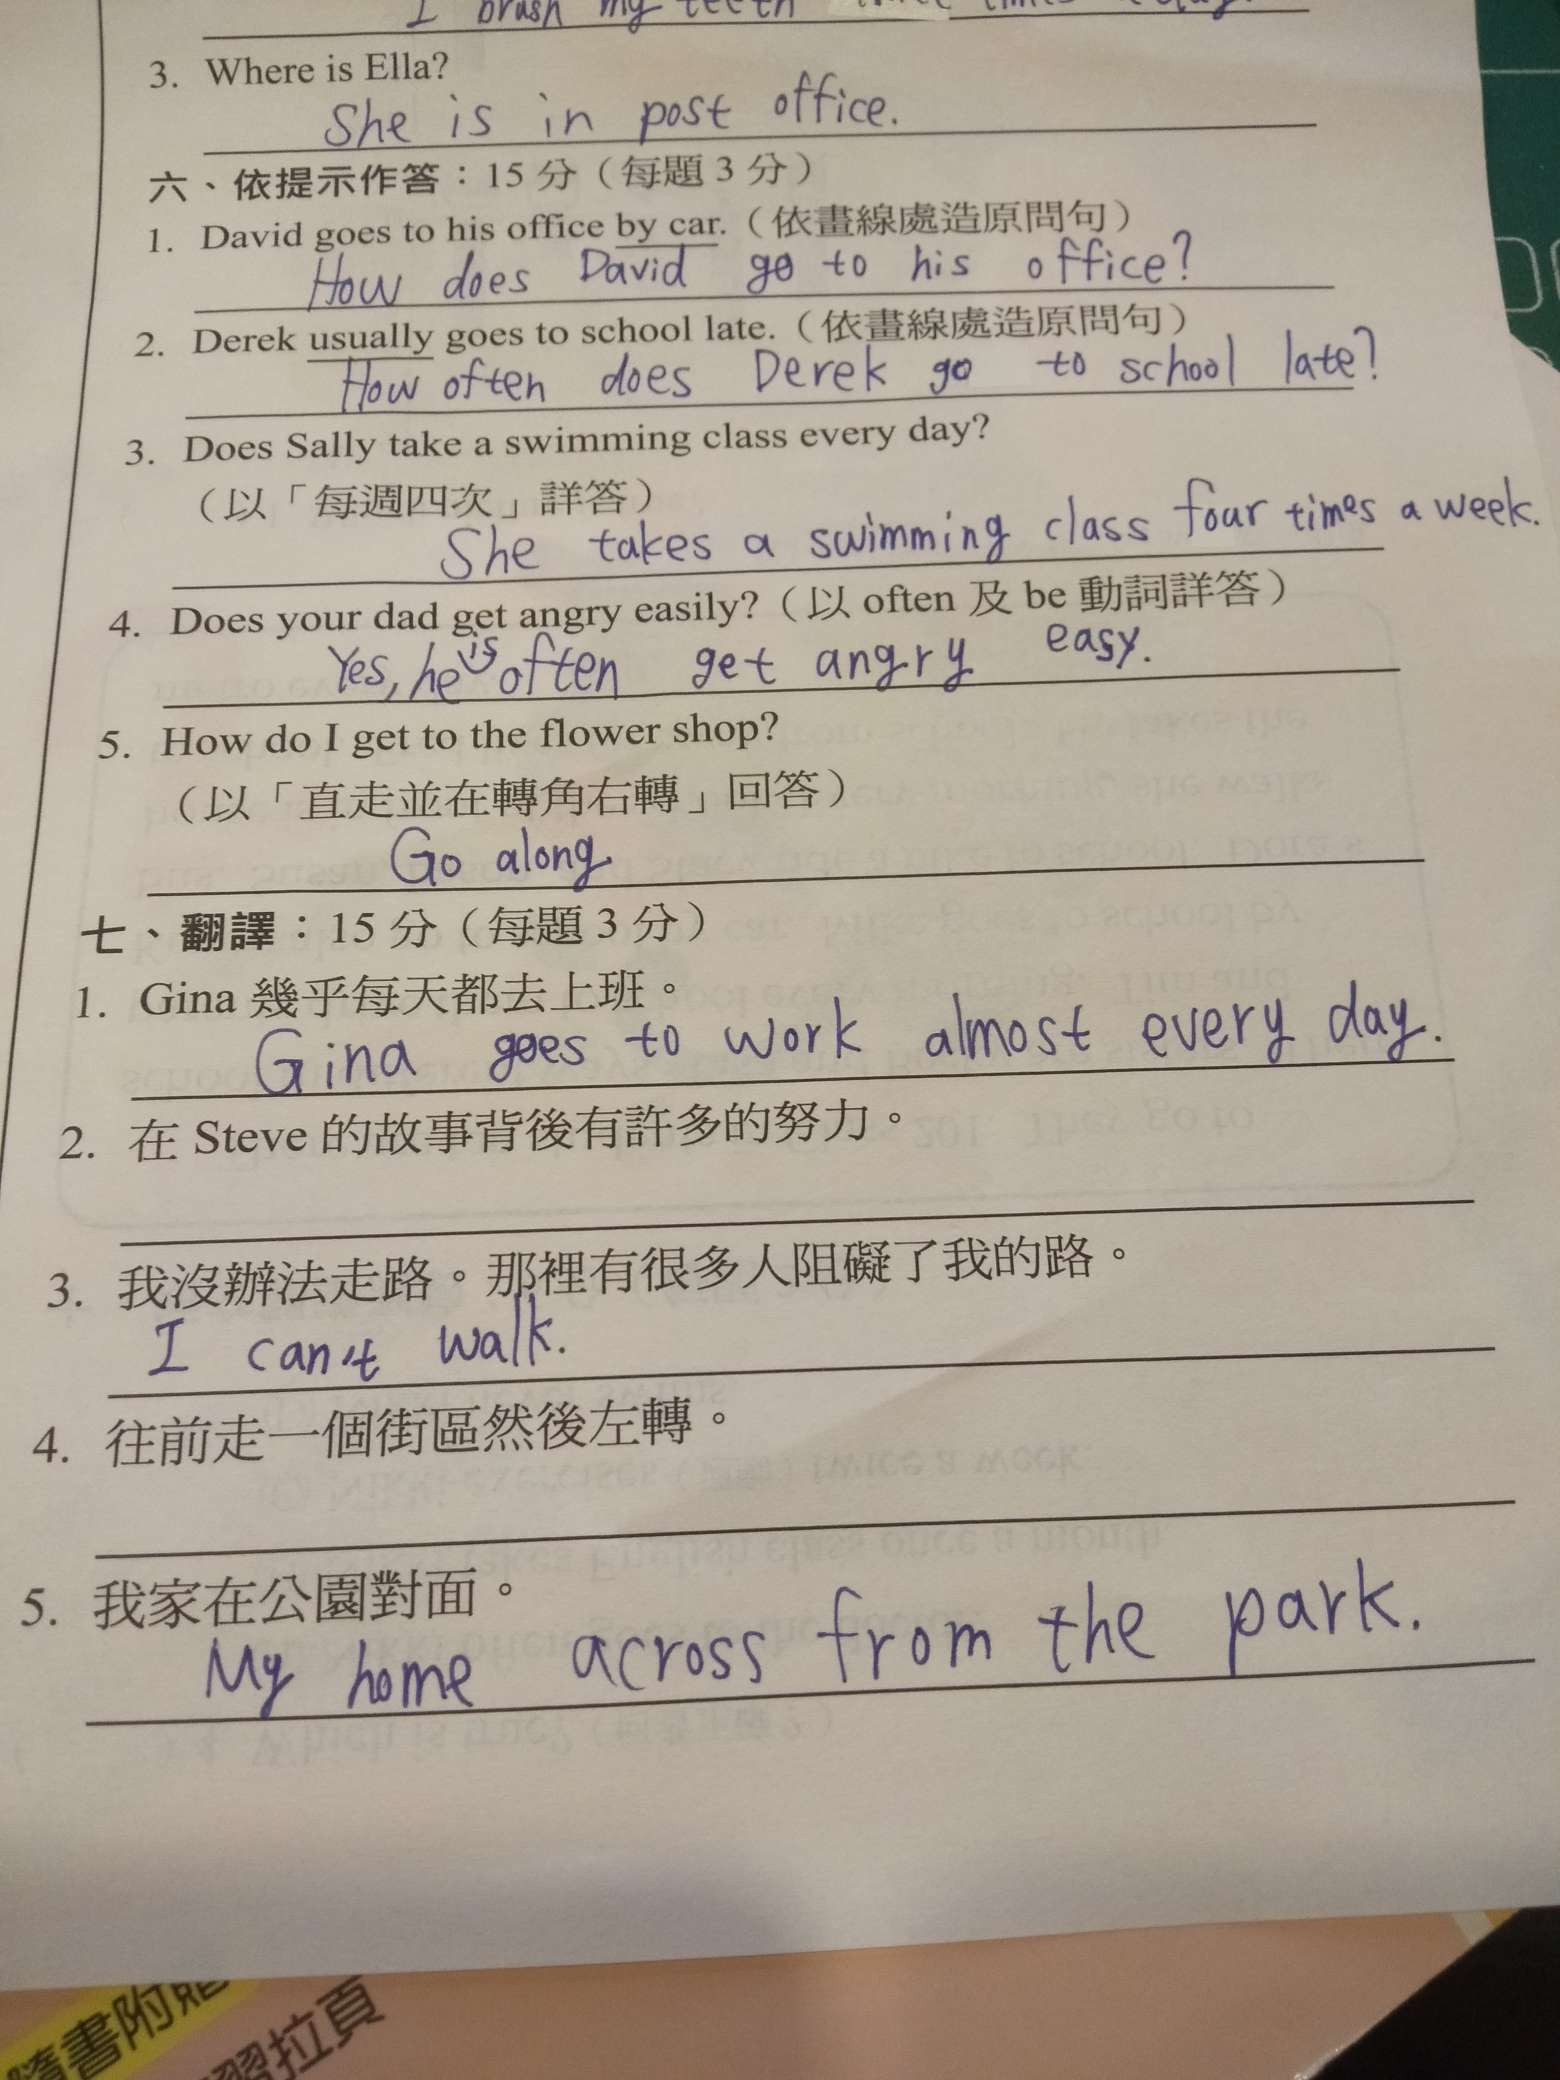 I brush my teeth times a day.
3. Where is Ella?
She is in post office.
六、依提示作答：15 分（每題 3 分）
1. David goes to his office by car.（依畫線處造原問句）
How does David go to his office?
2. Derek usually goes to school late.（依畫線處造原問句）
How often does Derek go to school late?
3. Does Sally take a swimming class every day?
（以「每週四次」詳答）
She takes a swimming class four times a week.
4. Does your dad get angry easily?（以 often 及 be 動詞詳答）
Yes, he is often get angry easy.
5. How do I get to the flower shop?
（以「直走並在轉角右轉」回答）
Go along
七、翻譯：15 分（每題 3 分）
1. Gina 幾乎每天都去上班。
Gina goes to work almost every day.
2. 在 Steve 的故事背後有許多的努力。
3. 我沒辦法走路。那裡有很多人阻礙了我的路。
I can't walk.
4. 往前走一個街區然後左轉。
5. 我家在公園對面。
My home across from the park.
隨書附贈
習拉頁